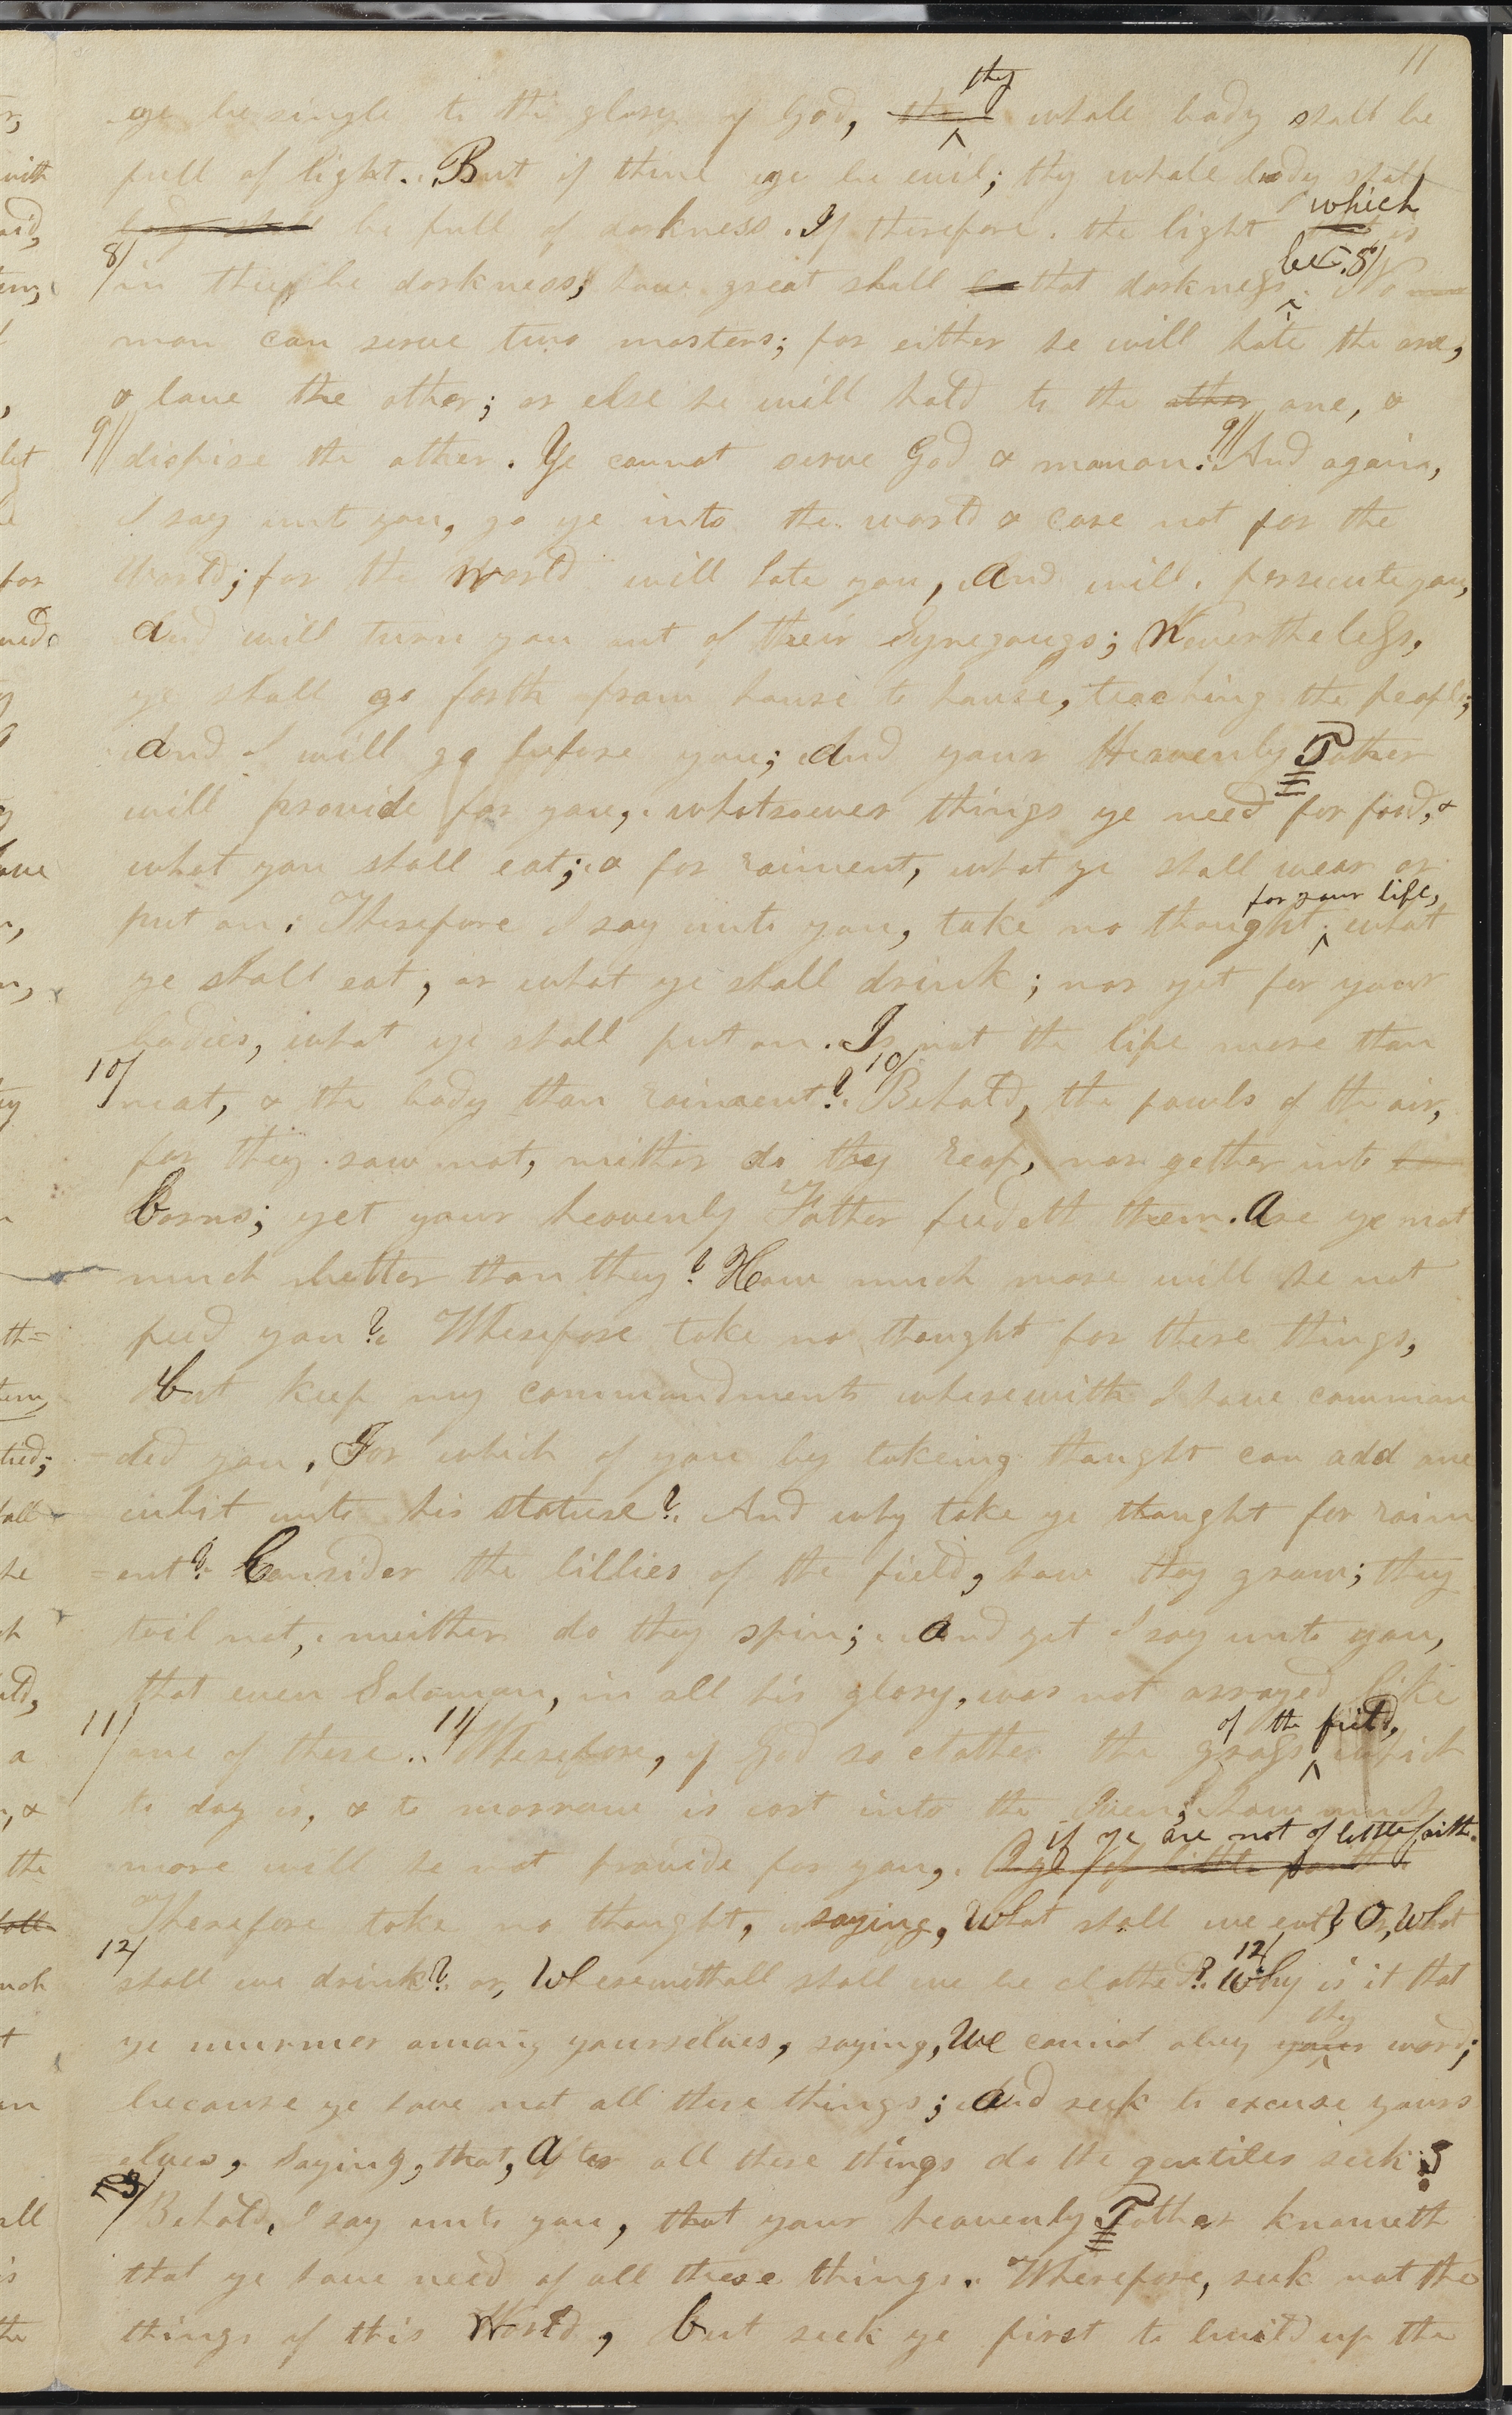 11
eye be single to the glory of God, ~~the~~ thy whole body shall be
full of light. But if thine eye be evil; thy whole body shall
~~body shall~~ be full of darkness. If therefore the light which is
8/ in thee be darkness; how great shall ~~be~~ that darkness be. 8/ No
man can serve two masters; for either he will hate the one,
& love the other; or else he will hold to the ~~other~~ one, &
9// dispise the other. Ye cannot serve God & mamon. 9// And again,
I say unto you, go ye into the world & care not for the
world; for the World will hate you, And will persecute you,
And will turn you out of their Synegaugs; Nevertheless,
ye shall go forth from house to house, teaching the people;
And I will go before you; And your Heavenly Father
will provide for you, whatsoever things ye need for food, &
what you shall eat; & for raiment, what ye shall wear or
put on. Therefore I say unto you, take no thought for your life, what
ye shall eat, or what ye shall drink; nor yet for your
bodies, what ye shall put on. Is not the life more than
10/ meat, & the body than raiment? 10/ Behold, the fowls of the air,
for they sow not, neither do they reap, nor gether into
barns; yet your heavenly Father feedeth them. Are ye not
much better than they? How much more will he not
feed you? Wherefore take no thought for these things,
but keep my commandments wherewith I have comman
=ded you, For which of you by takeing thought can add one
cubit unto his stature? And why take ye thought for raim
=ent? Consider the lillies of the field, how they grow; they
toil not, neither do they spin; And yet I say unto you,
that even Solomon, in all his glory, was not arrayed like
11/ one of these. 11/ Therefore, if God so clothe the grass of the field, which
to day is, & to morrow is cast into the oven; how much
more will he not provide for you, ~~O ye of little faith~~ if ye are not of little faith.
Therefore take no thought, saying, What shall we eat? Or, What
12/ shall we drink? or, Wherewithall shall we be clothed? 12/ Why is it that
ye murmer among yourselves, saying, We cannot obey ~~your~~ thy word;
because ye have not all these things; And seek to excuse yours
elves, Saying, that, After all these things do the gentiles seek?
13/ Behold, I say unto you, that your heavenly Father knoweth
that ye have need of all these things. Wherefore, seek not the
things of this World, but seek ye first to build up the